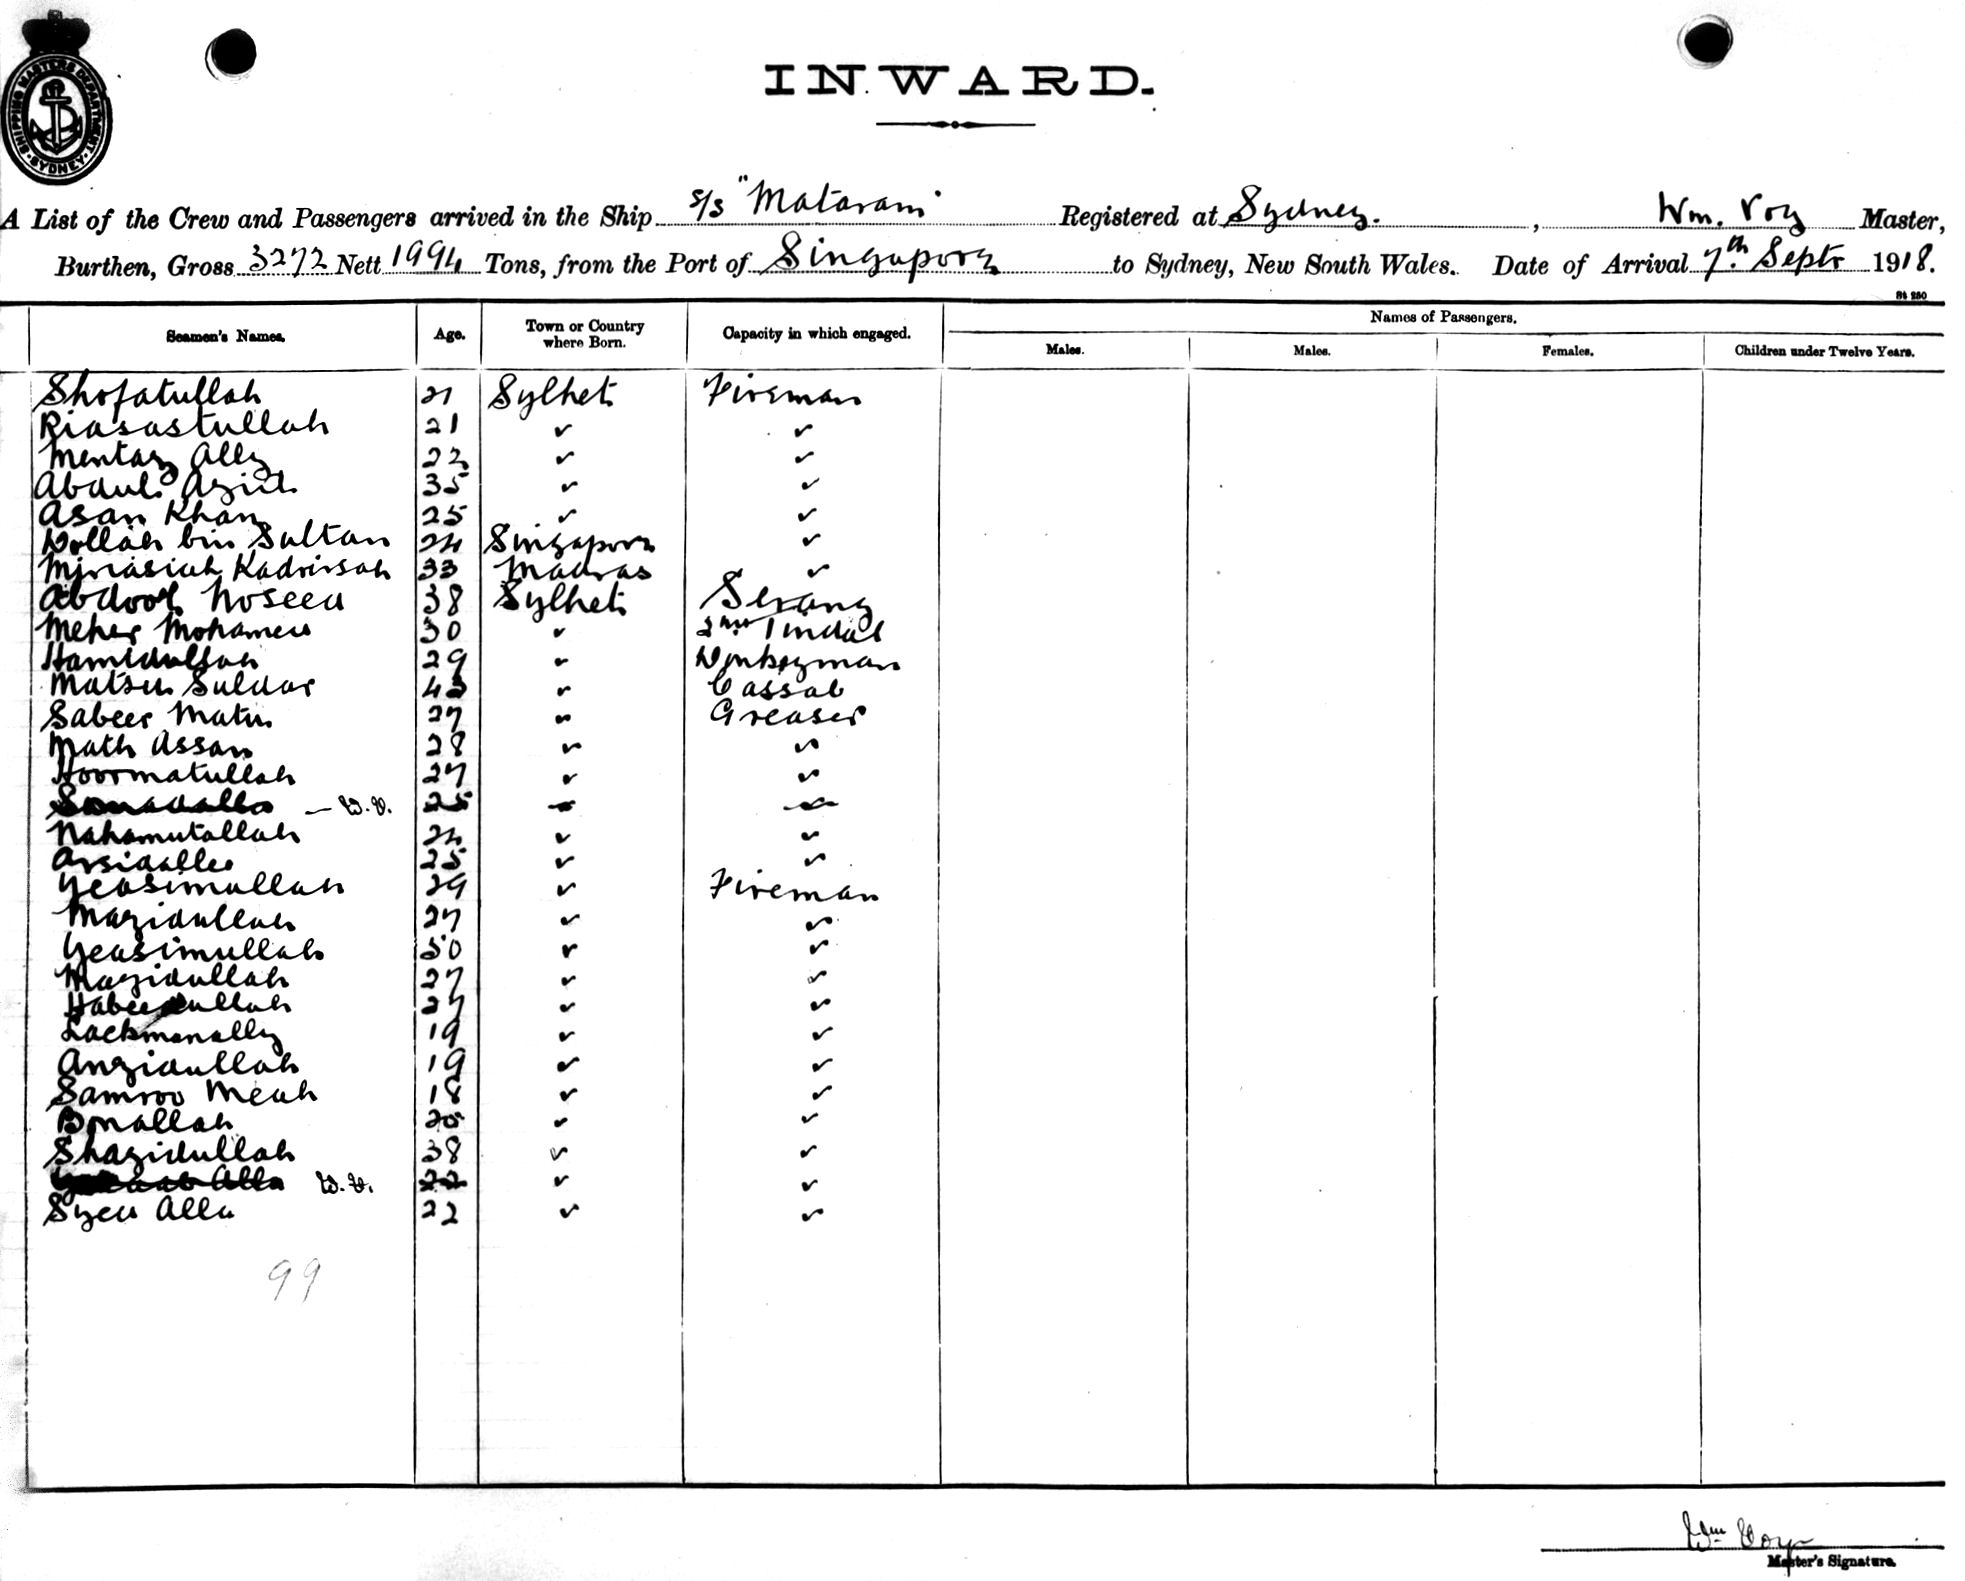 SHIPPING MASTERS DEPARTMENT SYDNEY
INWARD.
A List of the Crew and Passengers arrived in the Ship s/s "Mataram" Registered at Sydney. , Wm. Voy Master,
Burthen, Gross 3272 Nett 1994 Tons, from the Port of Singapore to Sydney, New South Wales. Date of Arrival 7th Septr 1918.
St 250
Seamen's Names. Age. Town or Country where Born. Capacity in which engaged. Names of Passengers.
Males. Males. Females. Children under Twelve Years.
Shofatullah 21 Sylhet Fireman
Riasastullah 21 " "
Mentaz Ally 22 " "
Abdul Aziz 35 " "
Asan Khan 25 " "
Dollah bin Sultan 24 Singapore "
Miriasiah Kadrirsah 33 Madras "
Abdool Noseed 38 Sylhet Serang
Meher Mohamed 30 " 2nd Tindal
Hamidullah 29 " Donkeyman
Matsu Suldar 43 " Cassab
Sabeer Matu 27 " Greaser
Math Assan 28 " "
Hoormatullah 27 " "
— W.V. 25 " "
Nahamutallah 24 " "
Arsidallee 25 " "
Yeasimullah 29 " Fireman
Mazidullah 27 " "
Yeasimullah 50 " "
Mazidullah 27 " "
Habeedullah 27 " "
Lackmanally 19 " "
Anzidullah 19 " "
Samroo Meah 18 " "
Bmallah 20 " "
Shazidullah 38 " "
Alla W.V. 22 " "
Syed Alla 22 " "
99
Wm Voy
Master's Signature.